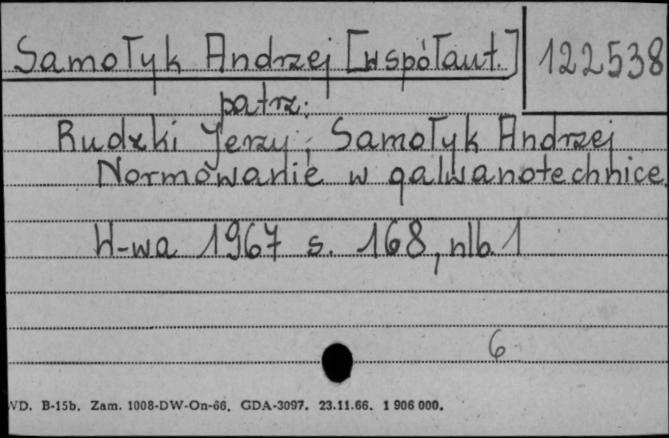 Samołyk Andrzej [współaut.] 122538
patrz:
Rudzki Jerzy, Samołyk Andrzej
Normowanie w galwanotechnice
W-wa 1967 s. 168, nlb. 1
6
WD. B-15b. Zam. 1008-DW-On-66. GDA-3097. 23.11.66. 1 906 000.